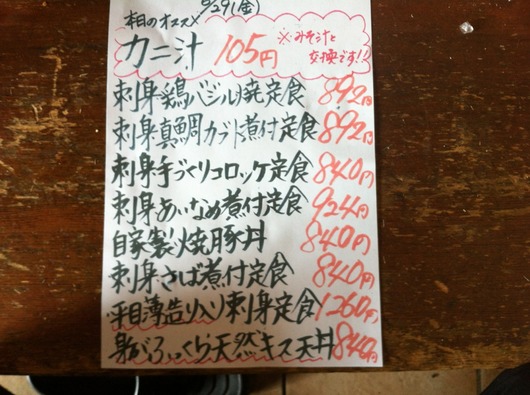 本日のオススメ 9/29(金)
カニ汁 105円 ※みそ汁と
交換です!!
刺身・鶏バジル焼定食 892円
刺身・真鯛カブト煮付定食 892円
刺身・手づくりコロッケ定食 840円
刺身・あいなめ煮付定食 924円
自家製焼豚丼 840円
刺身・さば煮付定食 840円
平目薄造り入り刺身定食 1260円
身がふっくら天然キス天丼 840円